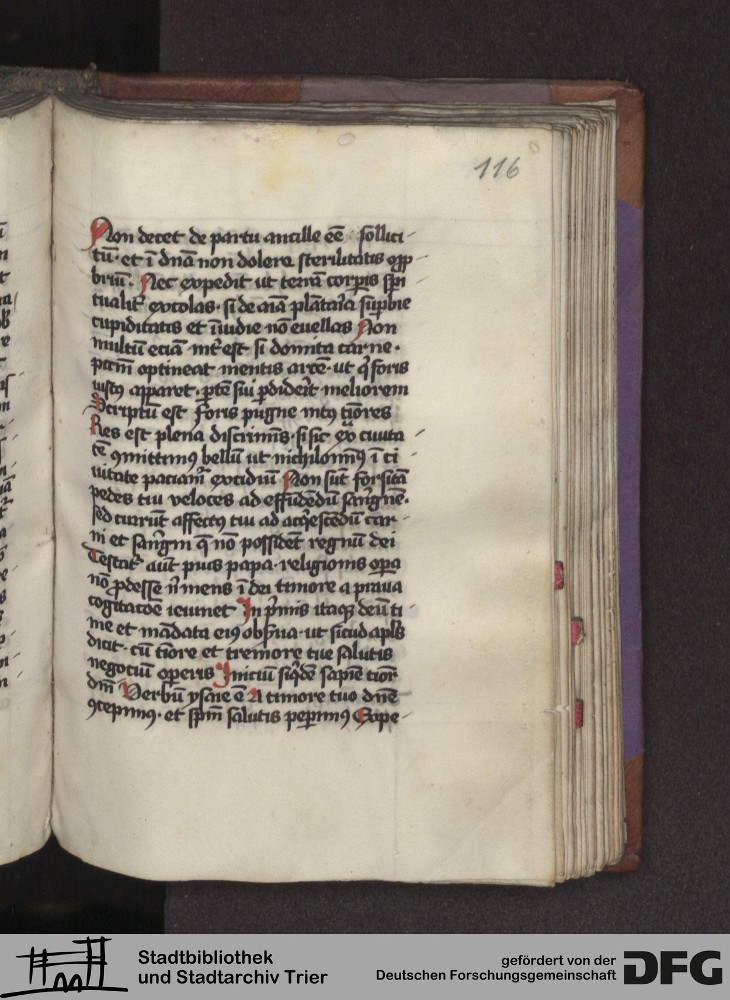 116
Non decet de partu ancille eē sollici-
tū· et ī dnā non dolere sterilitatis opp-
briū· Nec expedit ut terrā corpis spi
tualit excolas· si de aīa plātaria supbie
cupiditatis et īuidie nō euellas Non
multū eciā int'est si domita carne·
pacem optineat mentis arce· ut q foris
iustꝰ apparet· ptē sui pdiderit meliorem
Scriptū est foris pugne intꝰ tīores
Res est plena discriminis· si sic ex ciuita
te ꝯmittimꝰ bellū ut nichilominꝰ ī ci
uitate paciam' excidiū Non sūt forsitā
pedes tui veloces ad effūdēdū sangnē·
sed currūt affectꝰ tui ad acqescēdū car-
ni et sangni q nō possidet regnū dei
Testat' aūt pius papa· religionis opa
nō pdesse nī mens ī dei timore a praua
cogitacōe ieiunet In pmis itaqꝫ deū ti-
me et mādata eiꝰ obserua· ut sicud apls
dicit· cū tiore et tremore tue salutis
negociū operis Iniciū siqdē sapīe tīor
dnī Verbū ysaie ē A timore tuo dnē
ꝯcepimꝰ· et spm salutis pepimꝰ Cope-
Stadtbibliothek
und Stadtarchiv Trier
gefördert von der
Deutschen Forschungsgemeinschaft
DFG